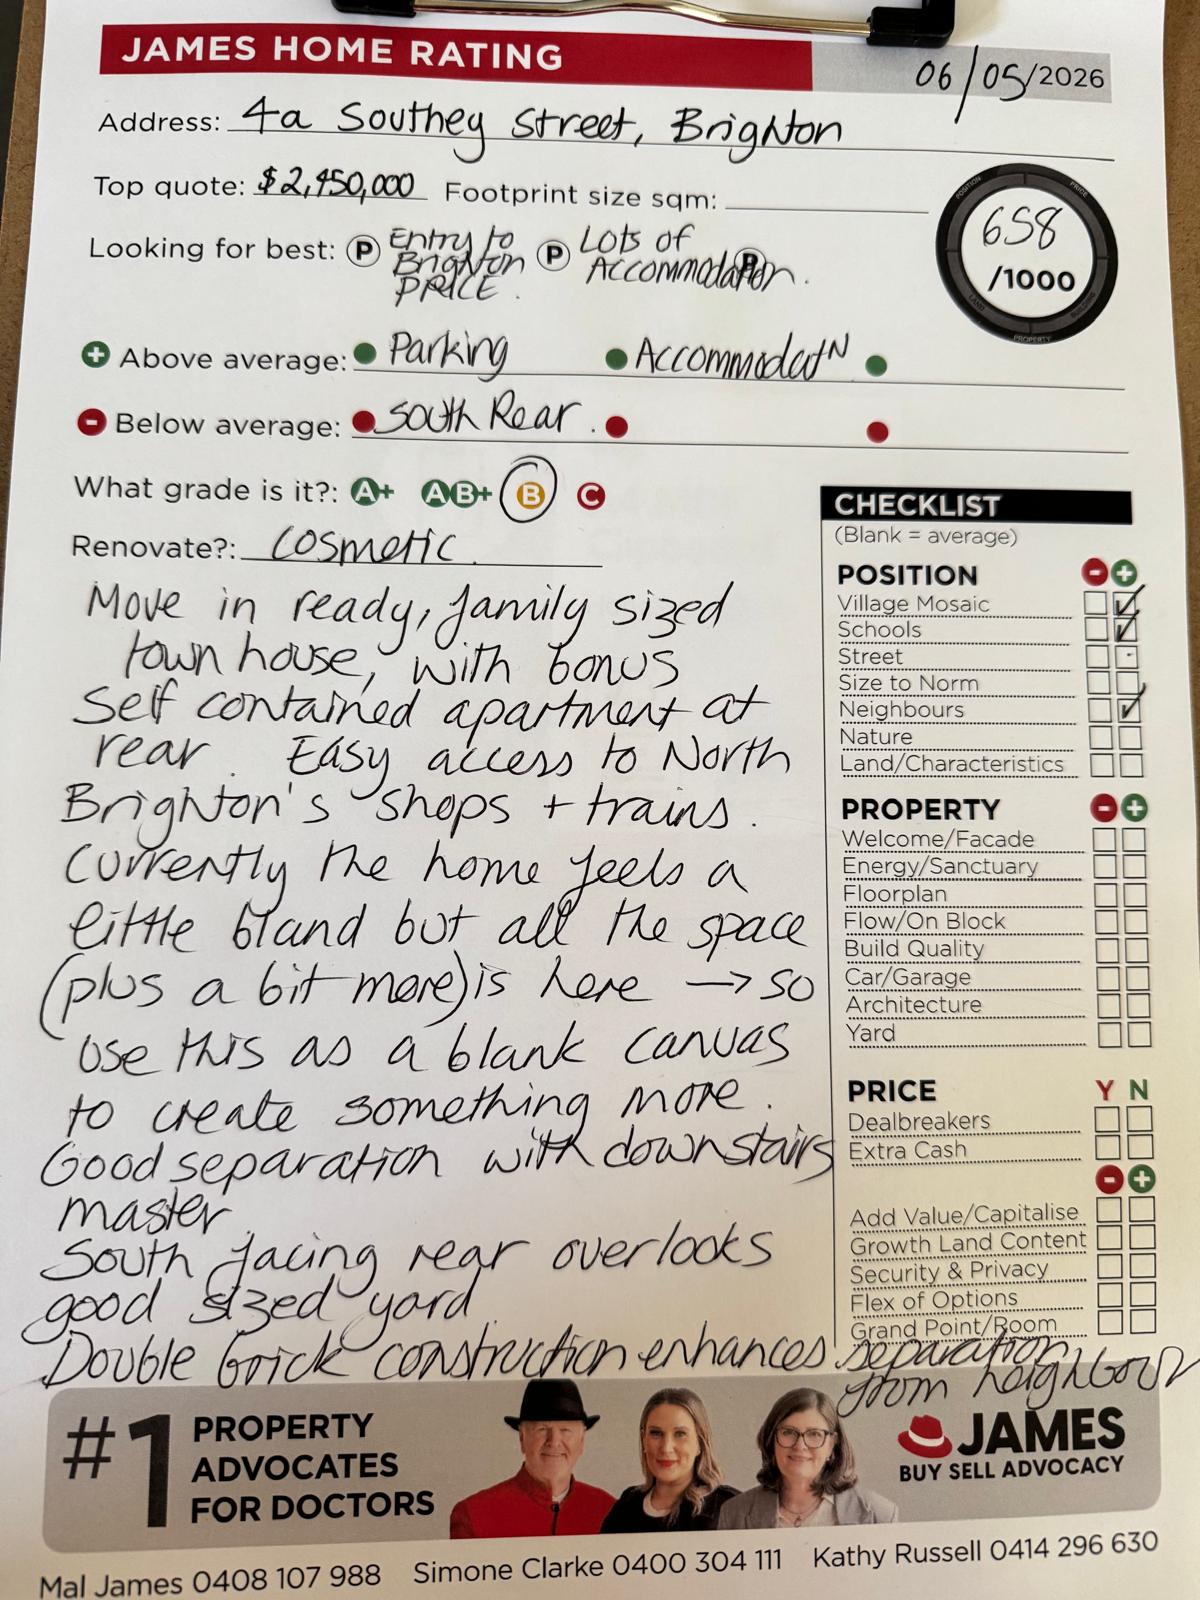 JAMES HOME RATING
06/05/2026
Address: 4a Southey Street, Brighton
Top quote: $2,450,000 Footprint size sqm:
658
/1000
Looking for best: P Entry to Brighton PRICE. P Lots of Accommodation. P
+ Above average: Parking Accommodatn
- Below average: South Rear.
What grade is it?: A+ AB+ B C
Renovate?: Cosmetic.
Move in ready, family sized
town house, with bonus
Self contained apartment at
rear. Easy access to North
Brighton's shops + trains.
Currently the home feels a
little bland but all the space
(plus a bit more) is here → so
use this as a blank canvas
to create something more.
Good separation with downstairs
master
South facing rear overlooks
good sized yard
Double brick construction enhances separation
from neighbour
CHECKLIST
(Blank = average)
POSITION - +
Village Mosaic ✓
Schools ✓
Street
Size to Norm
Neighbours ✓
Nature
Land/Characteristics
PROPERTY - +
Welcome/Facade
Energy/Sanctuary
Floorplan
Flow/On Block
Build Quality
Car/Garage
Architecture
Yard
PRICE Y N
Dealbreakers
Extra Cash
- +
Add Value/Capitalise
Growth Land Content
Security & Privacy
Flex of Options
Grand Point/Room
#1 PROPERTY
ADVOCATES
FOR DOCTORS
JAMES
BUY SELL ADVOCACY
Mal James 0408 107 988 Simone Clarke 0400 304 111 Kathy Russell 0414 296 630